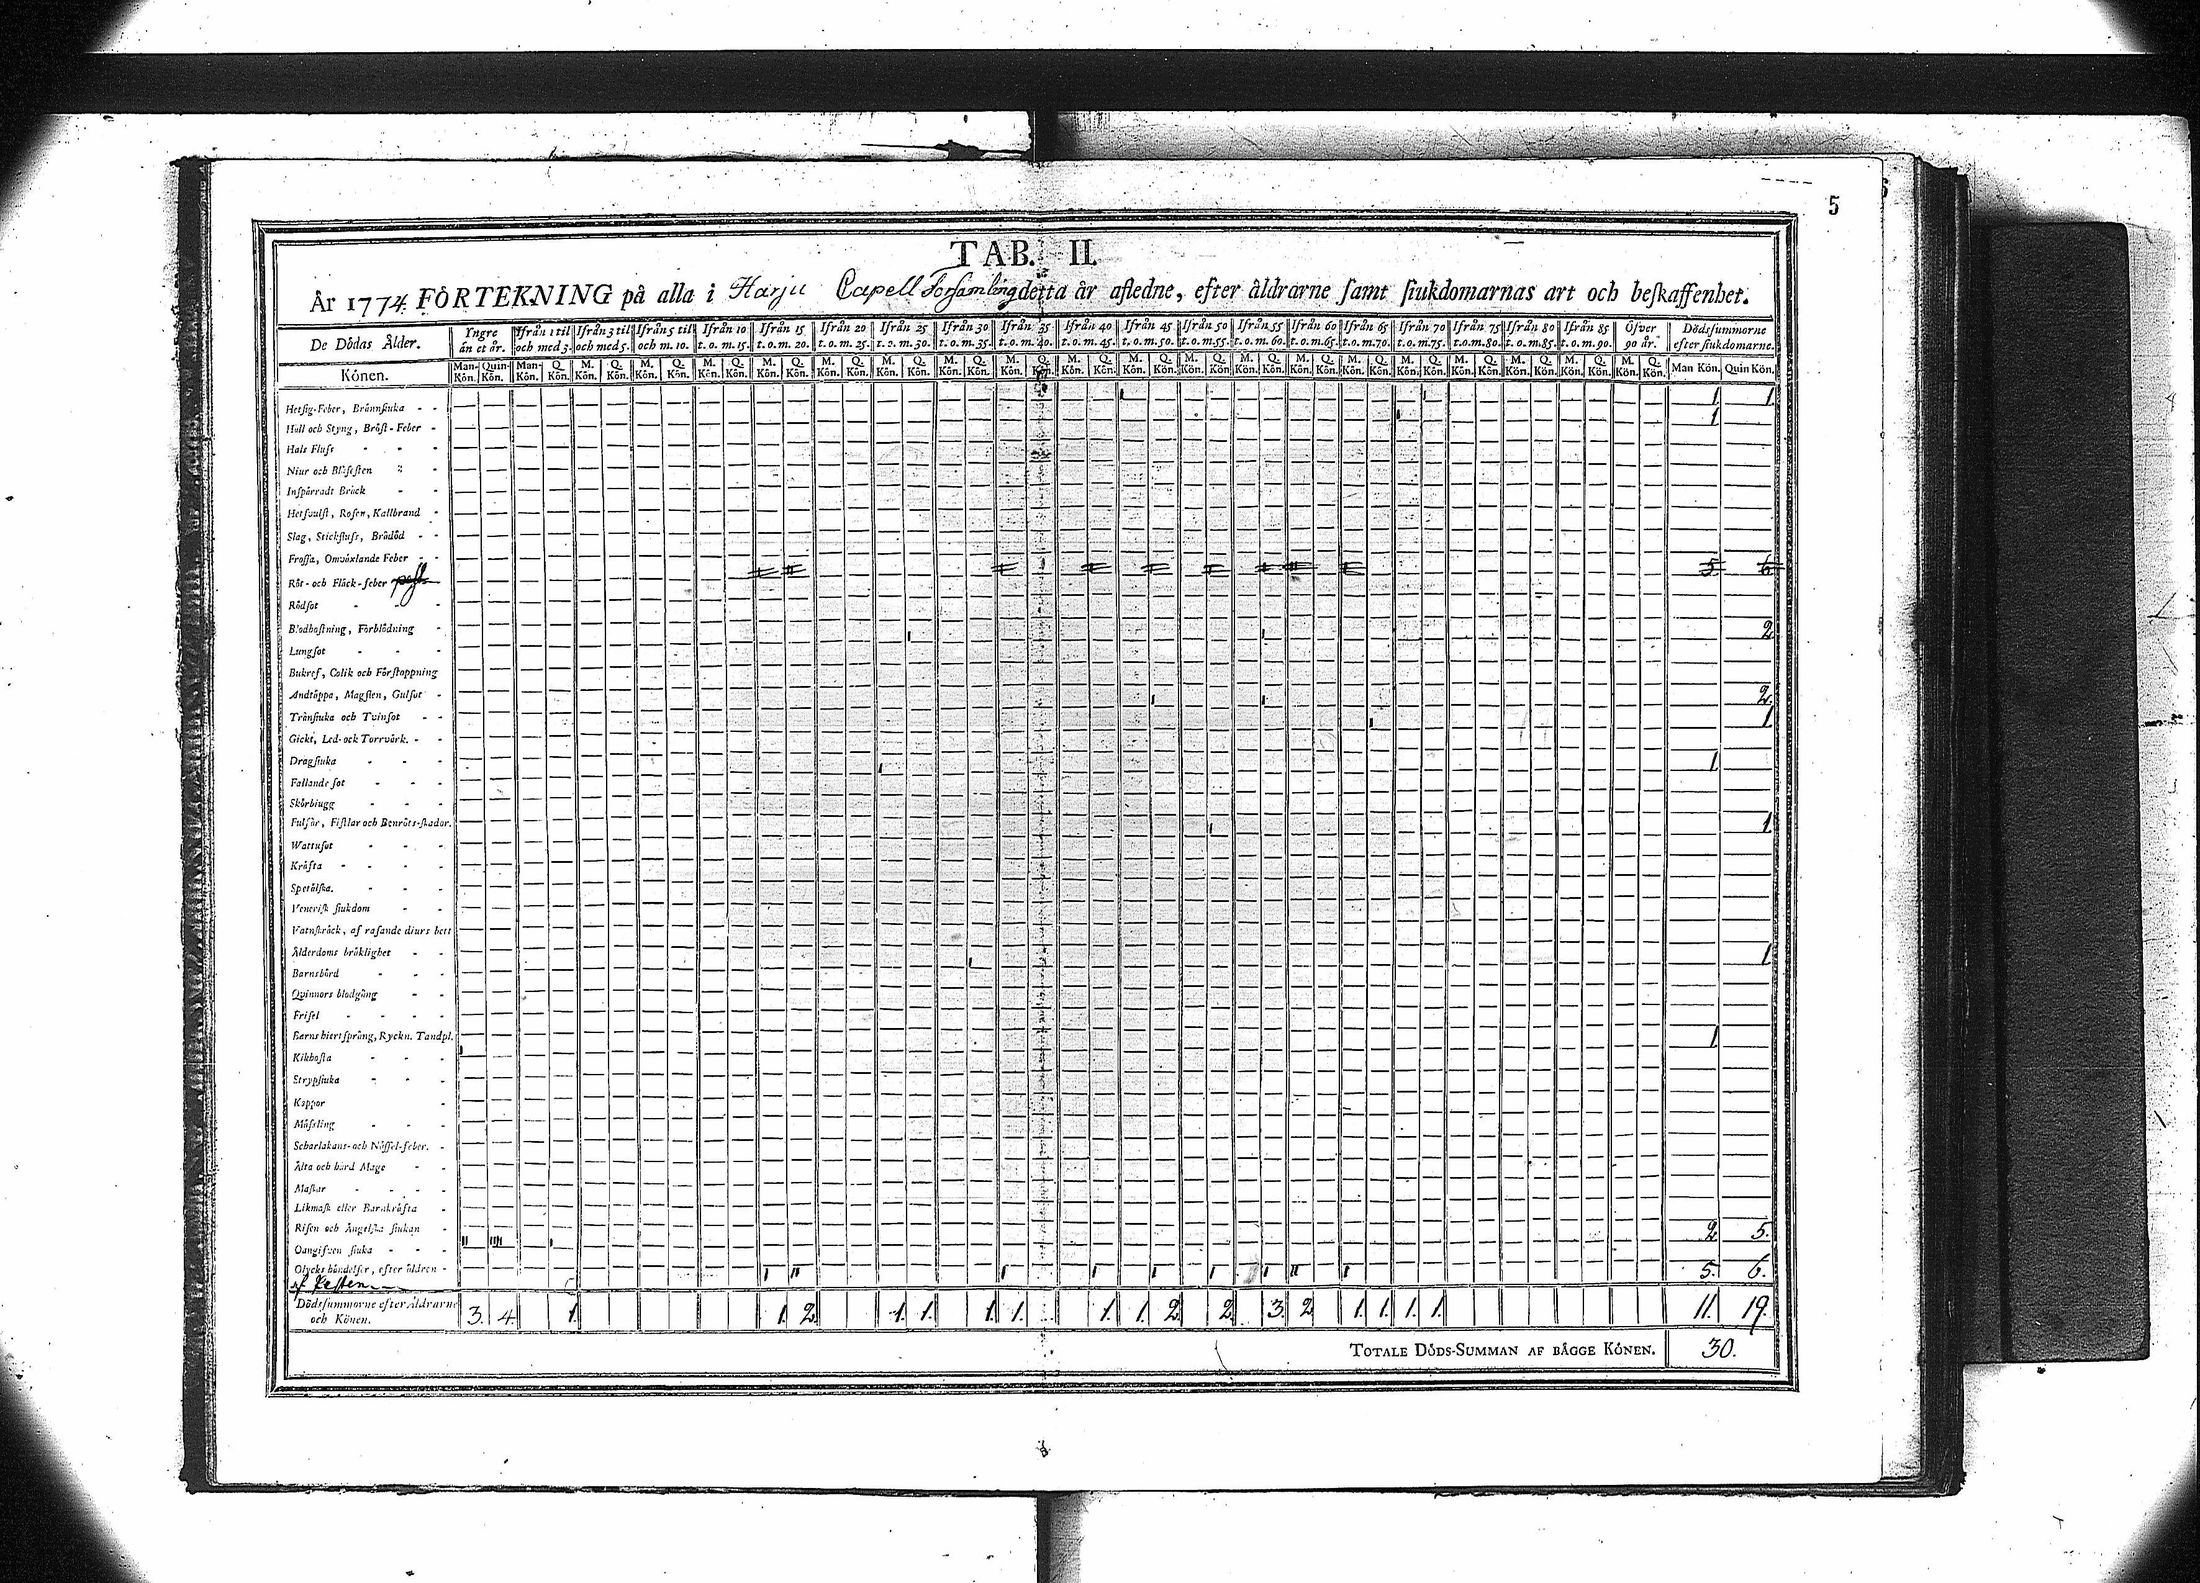 5
TAB. II.
År 1774 FÖRTEKNING på alla i Harju Capell Församling detta år afledne, efter åldrarne samt siukdomarnas art och beskaffenhet.
De Dödas Ålder. Yngre än et år. Ifrån 1 til och med 3. Ifrån 3 til och med 5. Ifrån 5 til och m. 10. Ifrån 10 t. o. m. 15. Ifrån 15 t. o. m. 20. Ifrån 20 t. o. m. 25. Ifrån 25 t. o. m. 30. Ifrån 30 t. o. m. 35. Ifrån 35 t. o. m. 40. Ifrån 40 t. o. m. 45. Ifrån 45 t. o. m. 50. Ifrån 50 t. o. m. 55. Ifrån 55 t. o. m. 60. Ifrån 60 t. o. m. 65. Ifrån 65 t. o. m. 70. Ifrån 70 t. o. m. 75. Ifrån 75 t. o. m. 80. Ifrån 80 t. o. m. 85. Ifrån 85 t. o. m. 90. Öfver 90 år. Dödssummorne efter siukdomarne.
Könen. Man-Kön. Quin-Kön. Man-Kön. Q. Kön. M. Kön. Q. Kön. M. Kön. Q. Kön. M. Kön. Q. Kön. M. Kön. Q. Kön. M. Kön. Q. Kön. M. Kön. Q. Kön. M. Kön. Q. Kön. M. Kön. Q. Kön. M. Kön. Q. Kön. M. Kön. Q. Kön. M. Kön. Q. Kön. M. Kön. Q. Kön. M. Kön. Q. Kön. M. Kön. Q. Kön. M. Kön. Q. Kön. M. Kön. Q. Kön. M. Kön. Q. Kön. M. Kön. Q. Kön. M. Kön. Q. Kön. Man Kön. Quin Kön.
Hetsig-Feber, Brännsiuka - - 1 1
Håll och Styng, Bröst-Feber - 1
Hals Fluss - - -
Niur och Blåsesten - -
Inspärradt Bråck - -
Hetsvulst, Rosen, Kallbrand -
Slag, Stickfluss, Brådöd - -
Frossa, Omväxlande Feber - -
Röt- och Fläck-feber pest 5 6
Rödsot - - -
Blodhostning, Förblödning - 2
Lungsot - - -
Bukref, Colik och Förstoppning
Andtäppa, Magsten, Gulsot - 2
Trånsiuka och Tvinsot - - 1
Gickt, Led-ock Torrvärk. - -
Dragsiuka - - - 1
Fallande sot - - -
Skörbiugg - - -
Fulsår, Fistlar och Benröts-skador. 1
Wattusot - - -
Kräfta - - - -
Spetälska. - - -
Venerisk siukdom - -
Vatnskräck, af rasande diurs bett
Ålderdoms bräklighet - - 1
Barnsbörd - - -
Qvinnors blodgång - -
Frisel - - - -
Barns hiertsprång, Ryckn. Tandpl. 1
Kikhosta - - -
Strypsiuka - - -
Koppor -
Mässling - - -
Scharlakans-och Nässel-feber. -
Älta och hård Mage - -
Maskar - - - -
Likmask eller Barnkräfta -
Risen och Ängelska siukan - 2 5.
Oangifven siuka - - -
Olycks händelser, efter åldren - 5. 6.
af Pesten
Dödssummorne efter Åldrarne och Könen. 3. 4. 1. 1. 2. 1. 1. 1. 1. 1. 1. 2. 2. 3. 2. 1. 1. 1. 1. 11. 19.
TOTALE DÖDS-SUMMAN AF BÅGGE KÖNEN. 30.